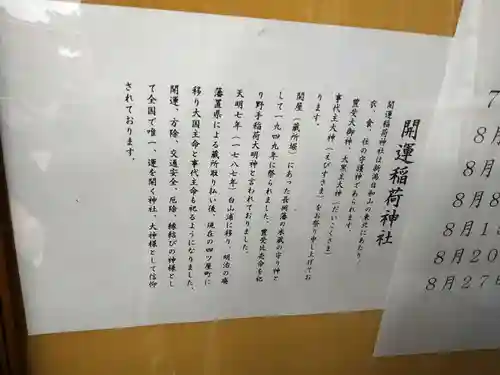 開運稲荷神社
開運稲荷神社は新潟白山の東北にあたり、
衣、食、住の守護神であられます。
豊受大御神、大黒主大神(だいこくさま)
事代主大神(えびすさま)をお祭り申し上げてお
ります。
関屋(蔵所堀)にあった長岡藩の米蔵の守り神と
して一七四九年に祭られました。豊受比売命を祀
り野手稲荷大明神と言われておりました。
天明七年(一七八七年)白山浦に移り、明治の廃
藩置県による蔵所取り払い後、現在の四ツ屋町に
移り大国主命と事代主命も祀るようになりました。
開運、方除、交通安全、厄除、縁結びの神様とし
て全国で唯一、運を開く神社、大神様として信仰
されております。
7
8月
8月
8月8
8月1
8月20
8月27日